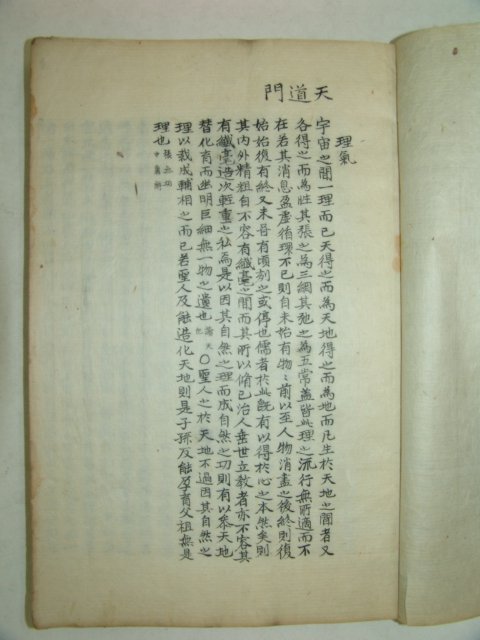 天道門
理氣
宇宙之間一理而已天得之而為天地得之而為地而凡生於天地之間者又
各得之而為性其張之為三綱其紀之為五常盖皆此理之流行無所適而不
在若其消息盈虛循環不已則自未始有物〻前以至人物消盡之後終則復
始始復有終又未甞有頃刻之或停也儒者於此旣有以得於心之本然矣則
其內外精粗自不容有纎毫之間而其所以脩己治人垂世立敎者亦不容其
有纎毫造次輕重之私焉是以因其自然之理而成自然之功則有以叅天地
替化育而幽明巨細無一物之遺也〇聖人之於天地不過因其自然之
理以裁成輔相之而已若聖人反能造化天地則是子孫反能孕育父祖無是
理也